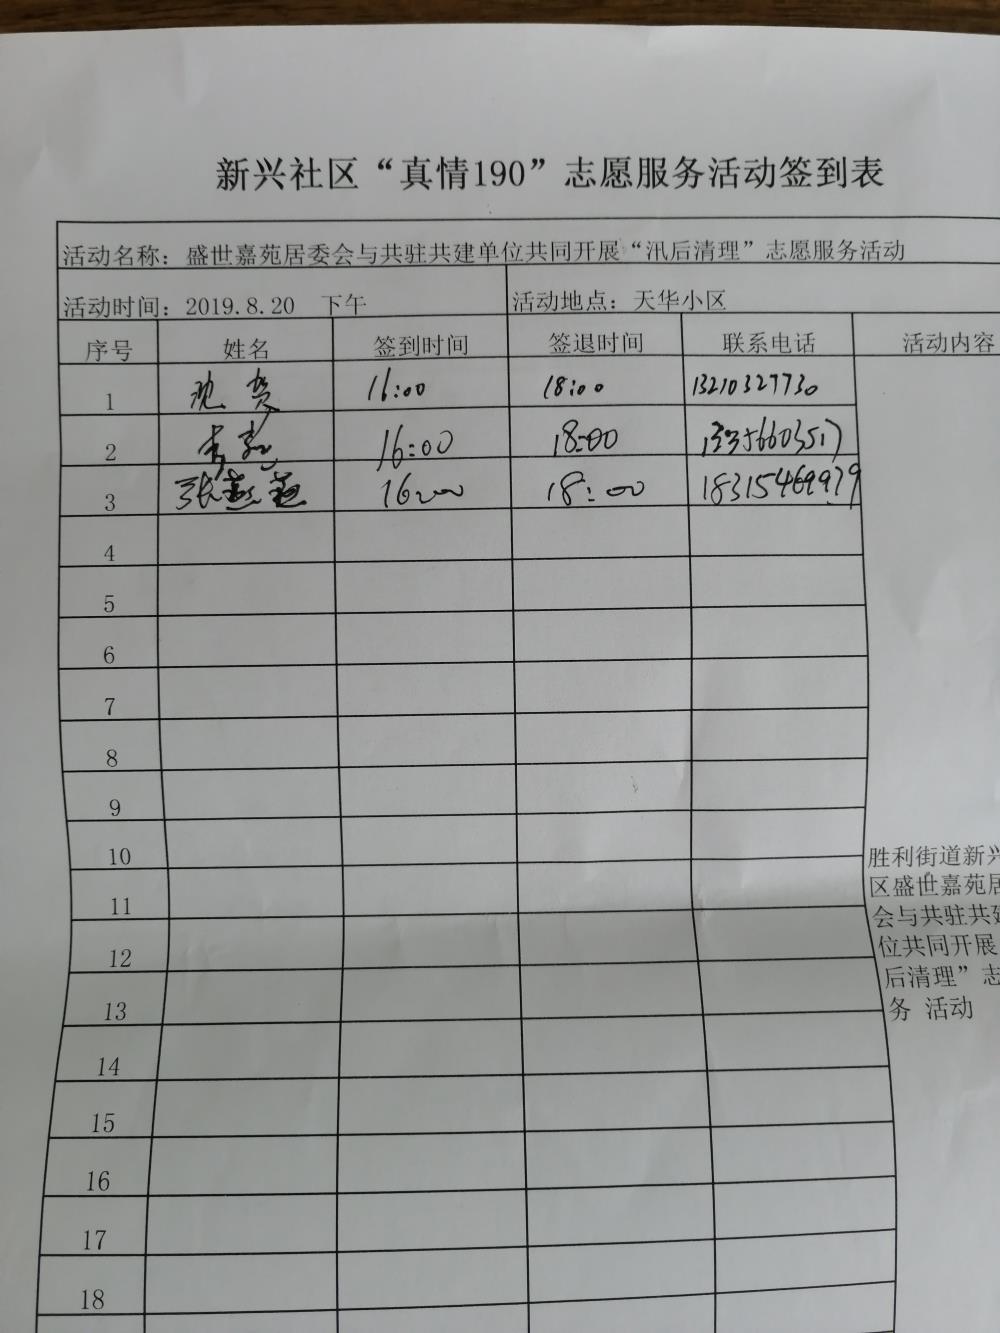 新兴社区“真情190”志愿服务活动签到表
活动名称：盛世嘉苑居委会与共驻共建单位共同开展“汛后清理”志愿服务活动
活动时间：2019.8.20 下午 活动地点：天华小区
序号 姓名 签到时间 签退时间 联系电话 活动内容
1 16:00 18:00 13210327730
2 16:00 18:00
3 张燕燕 16:00 18:00 18315469979
4
5
6
7
8
9
10
11
12
13
14
15
16
17
18
胜利街道新兴
区盛世嘉苑居
会与共驻共建
位共同开展
后清理”志
务 活动